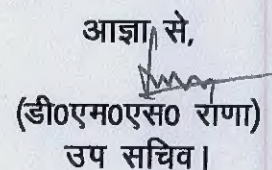 आज्ञा से,
(डी०एम०एस० राणा)
उप सचिव।